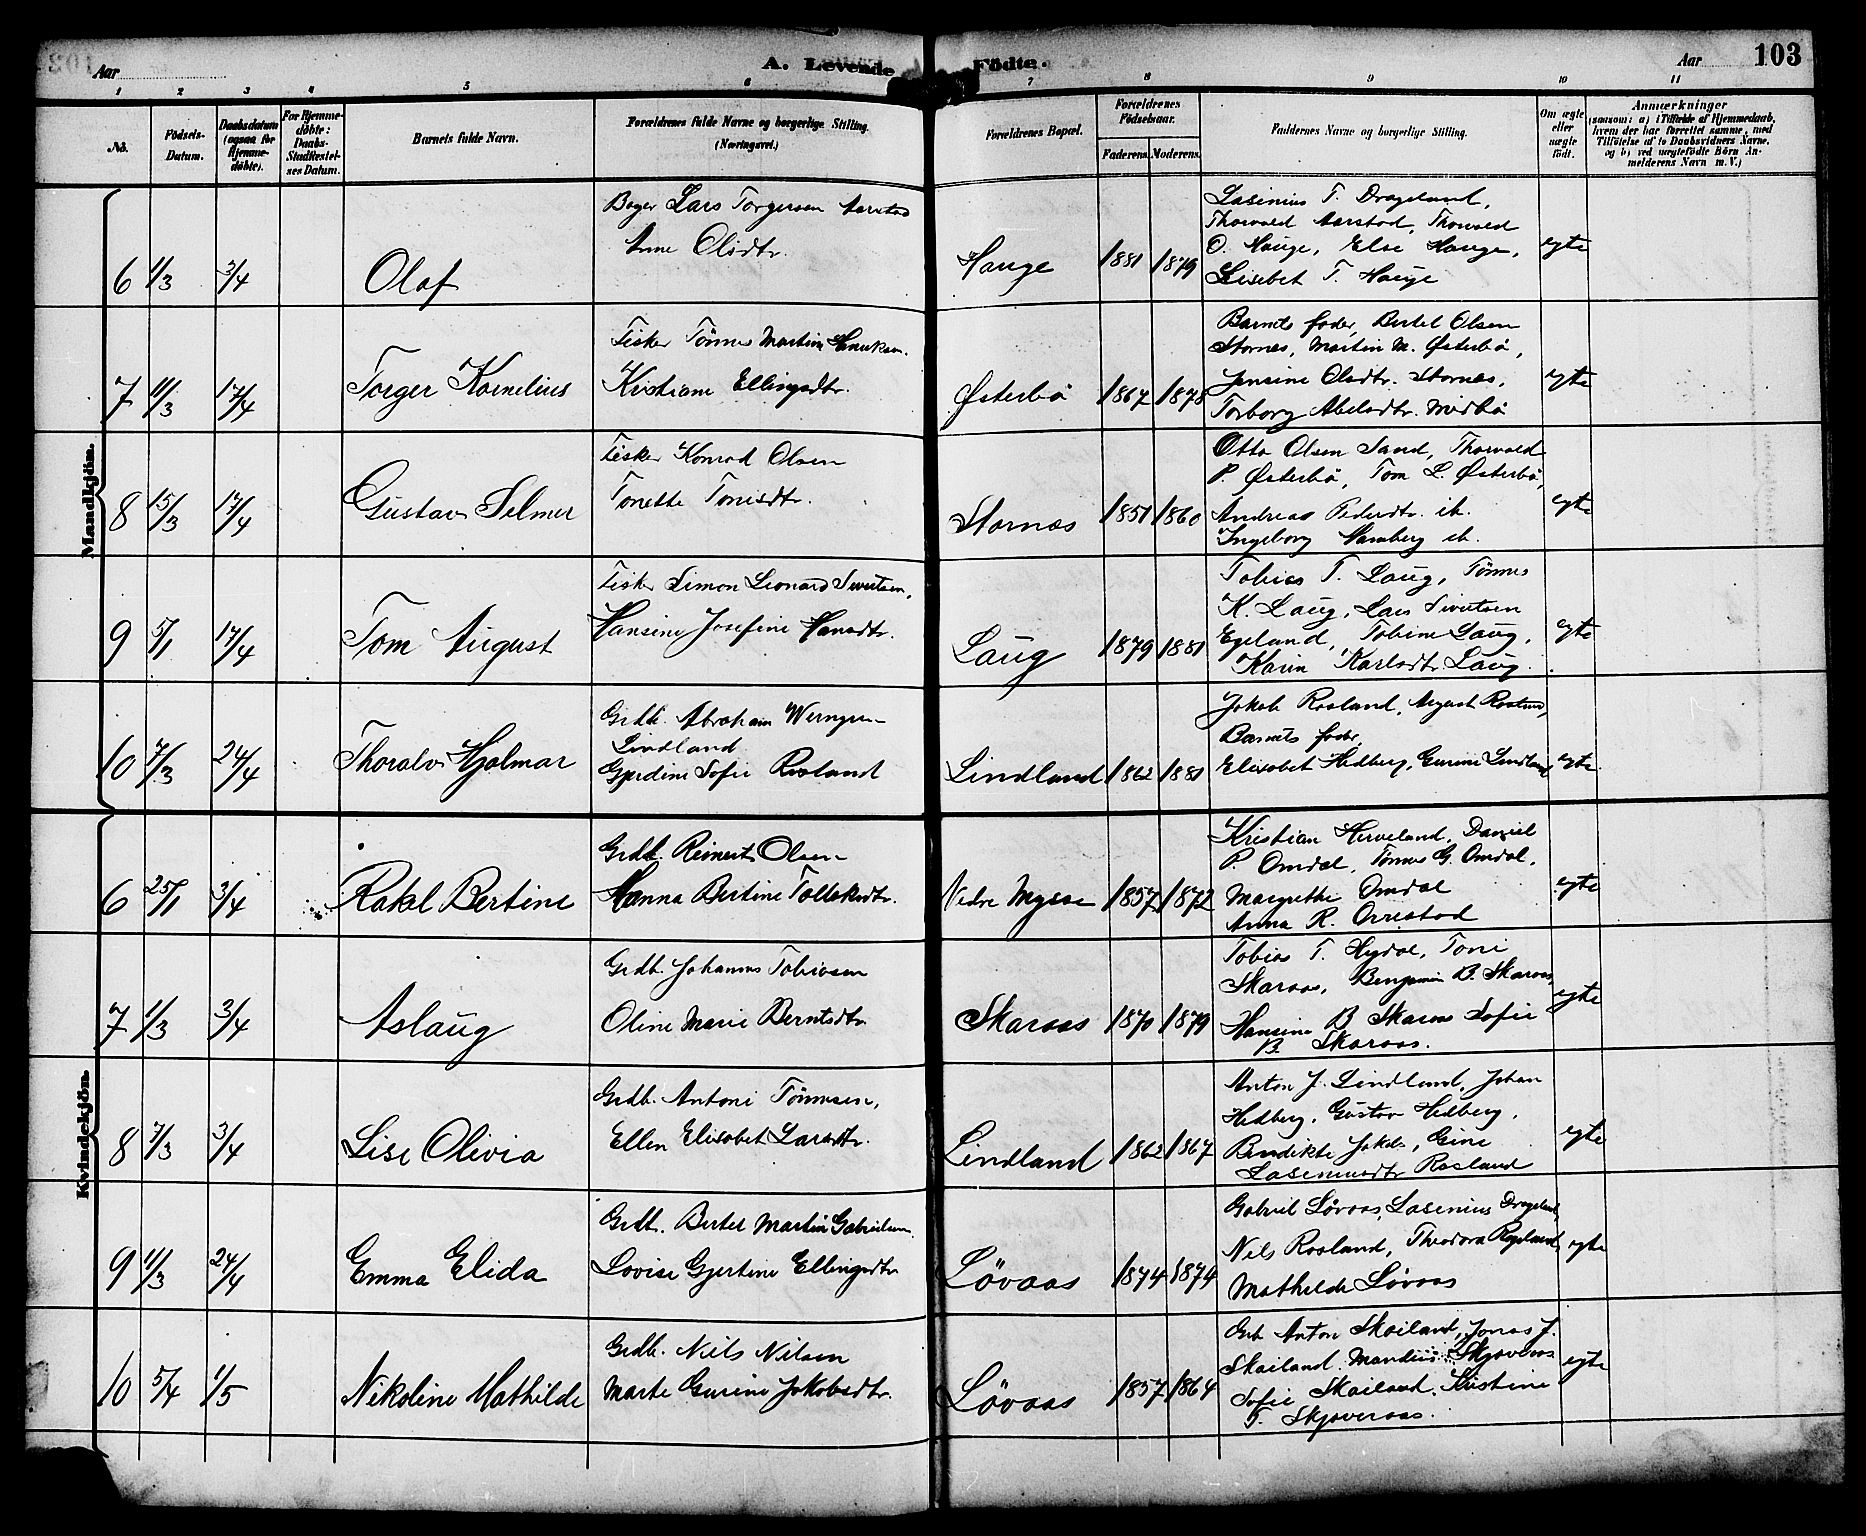 Aar
A. Levende Födte.
Aar
103
1 2 3 4 5 6 7 8 9 10 11
No.
Födsels-
Datum.
Daabsdatum
(ogsaa for
Hjemme-
döbte).
For Hjemme-
döbte:
Daabs-
Stadfæstel-
ses Datum.
Barnets fulde Navn.
Forældrenes fulde Navne og borgerlige Stilling.
(Næringsvei.)
Forældrenes Bopæl.
Forældrenes
Födselsaar.
Faderens. Moderens.
Faddernes Navne og borgerlige Stilling.
Om ægte
eller
uægte
födt.
Anmærkninger
(saasom: a) i Tilfælde af Hjemmedaab,
hvem der har forrettet samme, med
Tilföielse af to Daabsvidners Navne,
og b) ved uægtefödte Börn An-
melderens Navn m. V.)
Mandkjön.
6 1/3 3/4 Olaf
Lars Torgersen Aarstad
Anne Olsdtr.
Hauge 1881 1879
Lasinius T. Drageland,
Thorvald Aarstad, Thorvald
O. Hauge, Else Hauge,
Lisebet T. Hauge
egte
7 11/3 17/4 Torger Kornelius
Fisker Tönnes Martin Henriksen.
Kristiane Ellingsdtr.
Østerbö 1867 1878
Barnets fader, Bertel Olsen
Stornes, Martin M. Østerbö,
Jensine Olsdtr. Stornes,
Torborg Abelsdtr. Midbö
egte
8 15/3 17/4 Gustav Selmer
Fisker Konrad Olsen
Tonette Tonisdtr.
Stornes 1851 1860
Otto Olsen Sand, Thorvald
P. Østerbö, Tom L. Østerbö,
Andrea Pedersdtr. ib.
Ingeborg Hamberg ib.
egte
9 5/1 17/4 Tom August
Fisker Simon Leonard Sivertsen,
Hansine Josefine Hansdtr.
Laug 1879 1881
Tobias T. Laug, Tönnes
K. Laug, Lars Sivertsen
Egeland, Tobine Laug,
Karin Karlsdtr. Laug.
egte
10 7/3 24/4 Thoralv Hjalmar
Grdb. Abraham
Lindland
Gjerdine Sofie Rosland
Lindland 1862 1881
Jakob Rosland, August
Barnets fader,
Elisabet Hedberg, Gurine Lindland
egte
Kvindekjön.
6 25/1 3/4 Rakel Bertine
Grdb. Reinert Olsen
Hanna Bertine Tollaksdtr.
Nedre Mysse 1857 1872
Kristian Herveland, Daniel
P. Omdal, Tönnes G. Omdal,
Margrethe Omdal
Anna R. Orrestad
egte
7 1/3 3/4 Aslaug
Grdb. Johannes Tobiasen
Oline Marie Berntsdtr.
Skaraas 1870 1879
Tobias T. Hydal, Toni
Skaraas, Benjamin B. Skaraas,
Hansine B Skaraas Sofie
B. Skaraas.
egte
8 7/3 3/4 Lise Olivia
Grdb. Antoni Tönnesen,
Ellen Elisabet Larsdtr.
Lindland 1862 1867
Anton J. Lindland, Johan
Hedberg, Gustav Hedberg,
Bendikte Jakobs, Gine
Laseniusdtr Rosland
egte
9 11/3 24/4 Emma Elida
Grdb. Bertel Martin Gabrielsen
Lovise Gjertine Ellingsdtr
Løvaas 1874 1874
Gabriel Løvaas, Lasinius Drageland,
Nils Rosland, Theodora Rageland,
Mathilde Løvaas
egte
10 5/4 1/5 Nikoline Mathilde
Grdb. Niels Nilsen
Marte Gurine Jakobsdtr.
Løvaas 1857 1864
Grb Anton Skailand, Jonas J.
Skailand, Mandius Skjoveraas
Sofie Skailand, Kristine
T. Skjoveraas.
egte